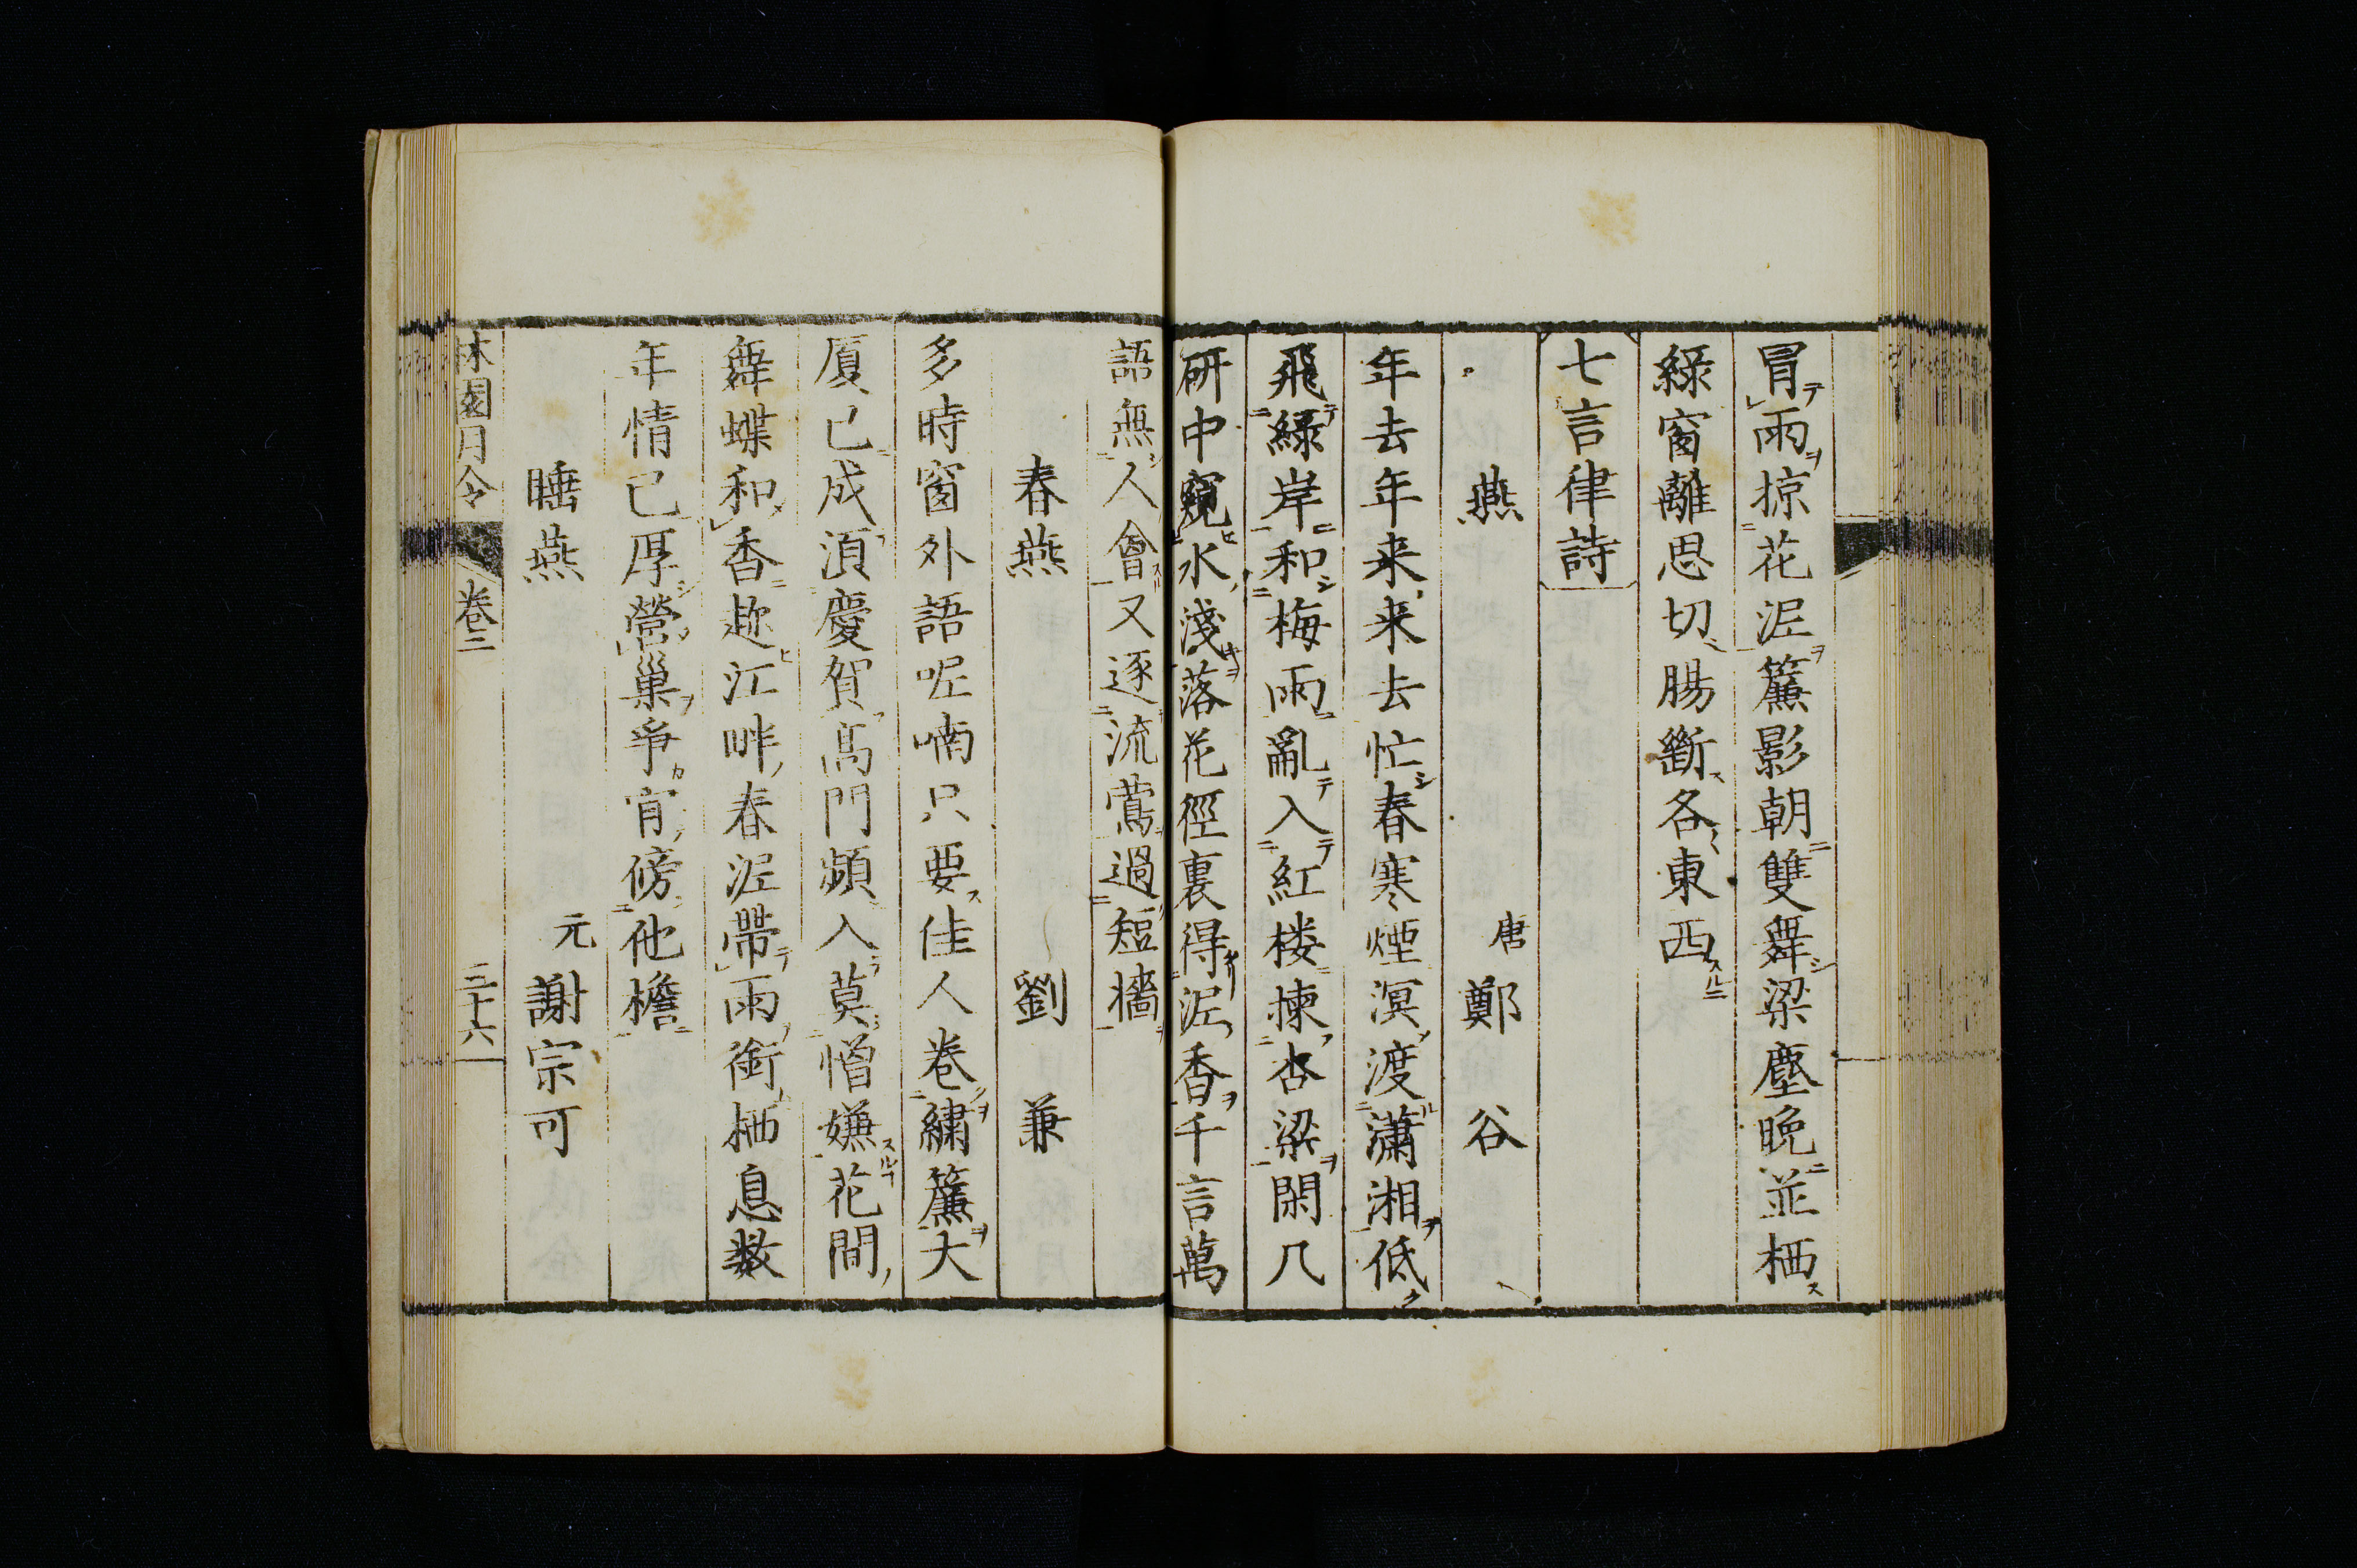 冒雨掠花泥簾影朝雙舞梁塵晩並栖
綠窗離思切腸斷各東西
七言律詩
燕 唐 鄭谷
年去年来来去忙春寒煙溟渡瀟湘低
飛綠岸和梅雨亂入紅楼揀杏梁閑几
研中窺水淺落花徑裏得泥香千言萬
語無人會又逐流鶯過短墻
春燕 劉兼
多時窗外語呢喃只要佳人卷繡簾大
厦已成湏慶賀高門頻入莫憎嫌花間
舞蝶和香趂江畔春泥帶雨銜栖息數
年情已厚營巢爭肎傍他檐
睡燕 元 謝宗可
林園月令 卷三 二十六